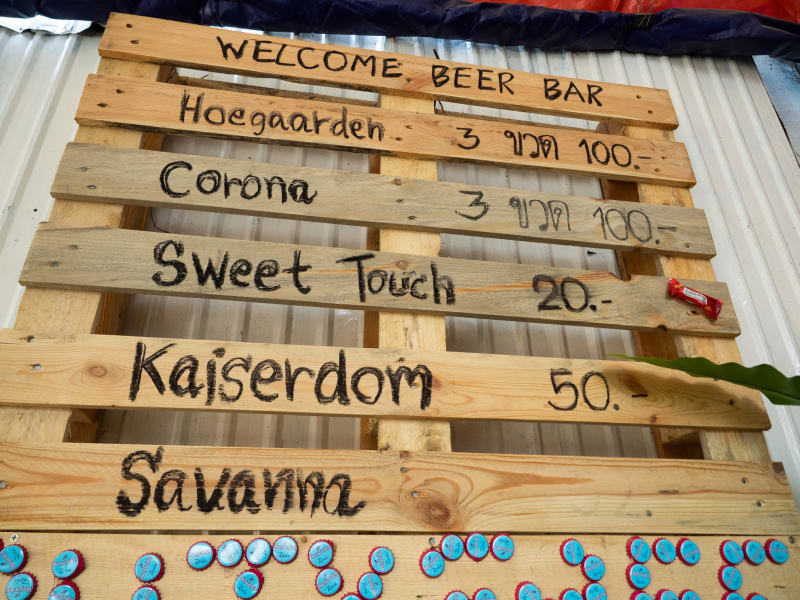 WELCOME. BEER BAR
Hoegaarden 3 ขวด 100.-
Corona 3 ขวด 100.-
Sweet Touch 20.-
Kaiserdom 50.-
Savanna